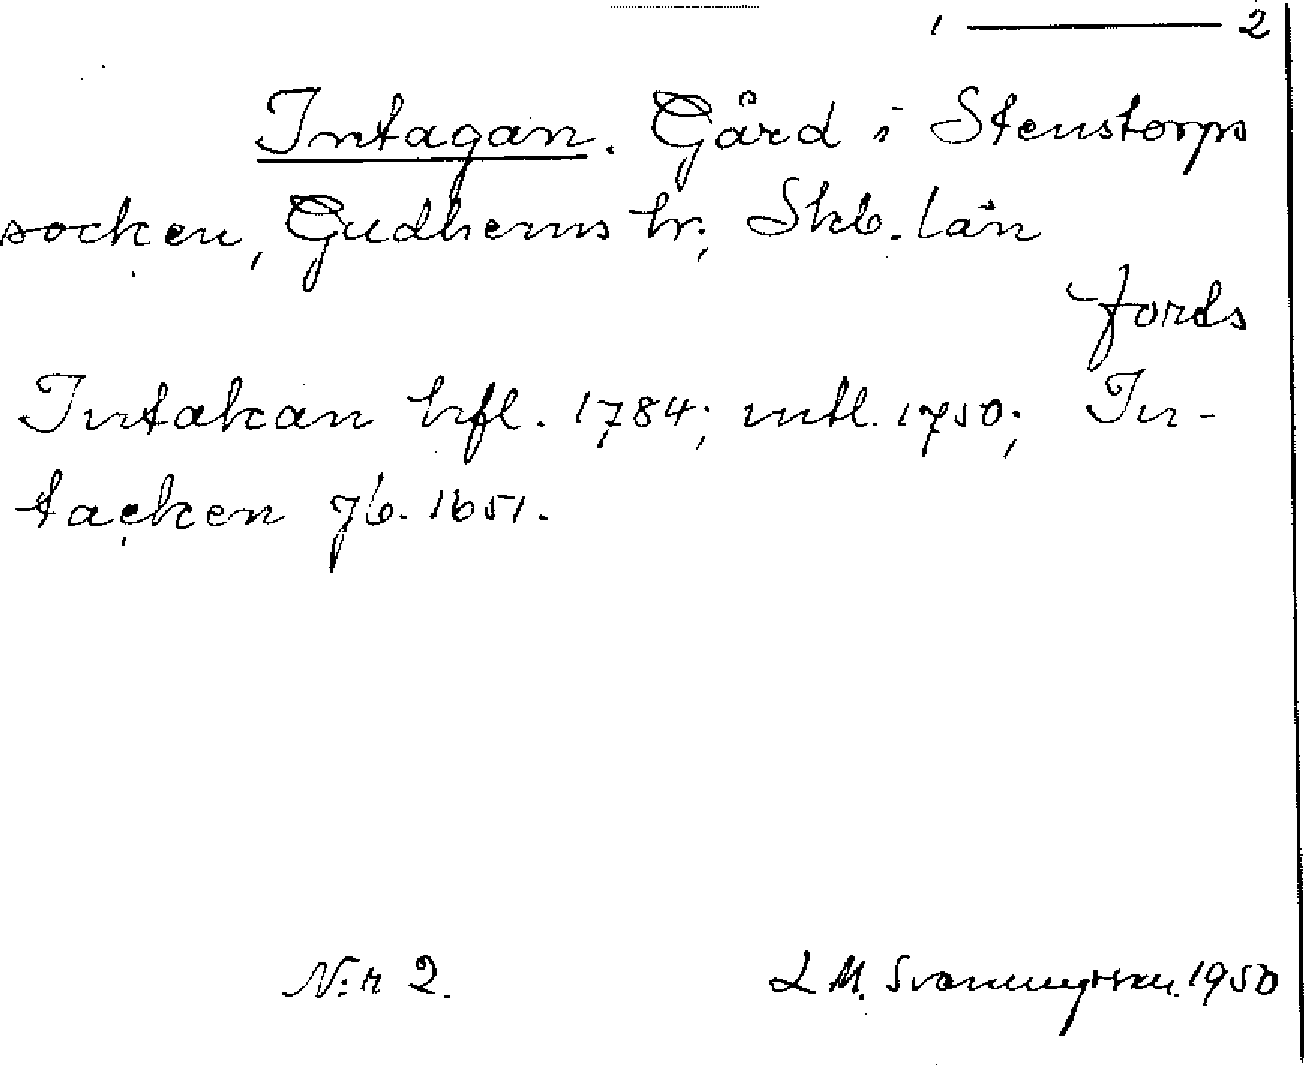 1 ——— 2
Intagan. Gård i Stenstorps
socken, Gudhems hr, Skb. län
fords
Intakan hfl. 1784; mtl. 1750; In-
tacken jb. 1651.
N:r 2. L M. Svanungsson. 1950